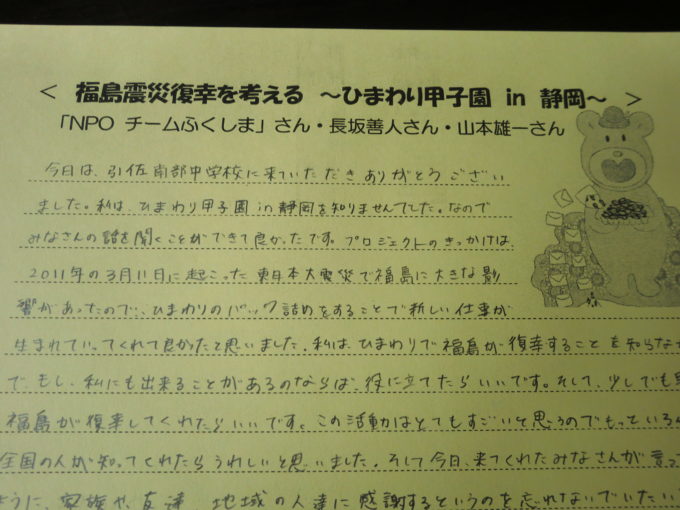 ＜ 福島震災復幸を考える ～ひまわり甲子園 in 静岡～ ＞
「NPO チームふくしま」さん・長坂善人さん・山本雄一さん
今日は、引佐南部中学校に来ていただきありがとうござい
ました。私は、ひまわり甲子園in静岡を知りませんでした。なので
みなさんの話を聞くことができて良かったです。プロジェクトのきっかけは、
2011年の3月11日に起こった東日本大震災で福島に大きな影
響があったので、ひまわりのパック詰めをすることで新しい仕事が
生まれていってくれて良かったと思いました。私は、ひまわりで福島が復幸することも知らな
で、もし、私にも出来ることがあるのならば、役に立てたらいいです。そして、少しでも
福島が復幸してくれたらいいです。この活動はとてもすごいと思うのでもっていろ
全国の人が知ってくれたらうれしいと思いました。そして今日、来てくれたみなさんが言っ
ように、家族や友達、地域の人達に感謝するというのを忘れないでいたい